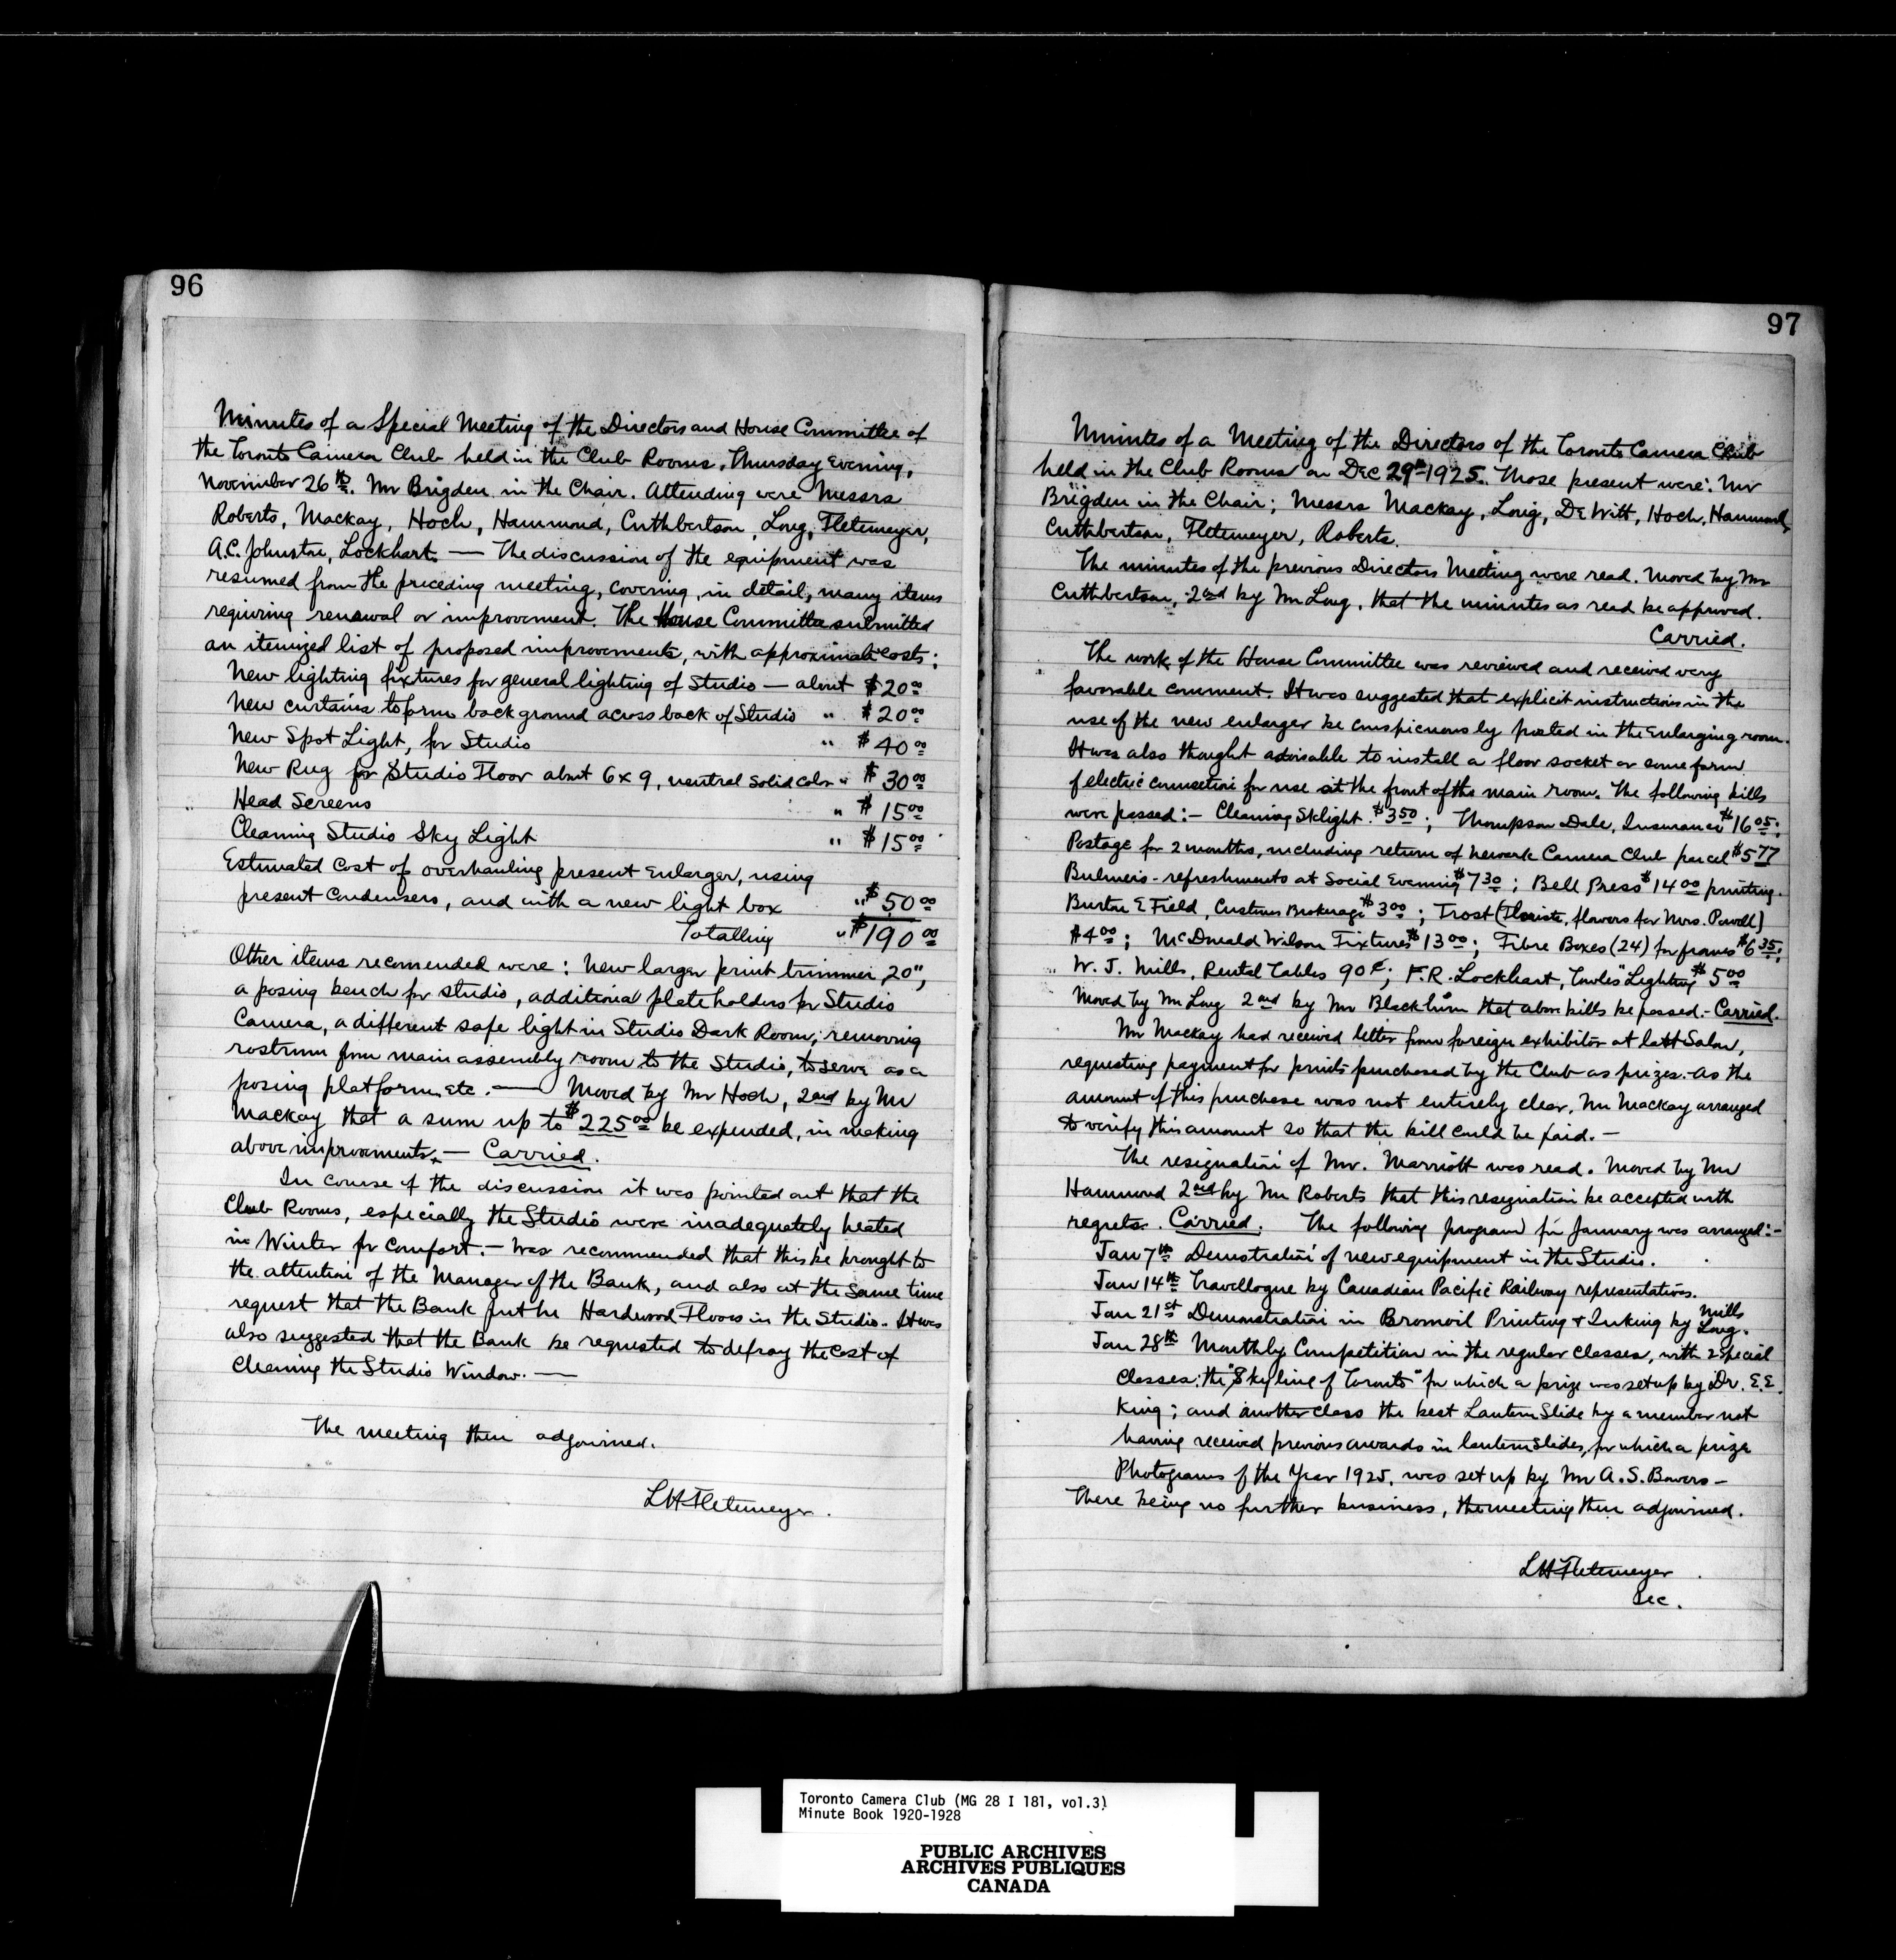 96
Minutes of a Special Meeting of the Directors and House Committee of
the Toronto Camera Club held in the Club Rooms, Thursday Evening,
November 26th. Mr Brigden in the Chair. Attending were Messrs
Roberts, Mackay, Hoch, Hammond, Cuthbertson, Long, Fletemeyer,
A.C. Johnston, Lockhart. — The discussion of the equipment was
resumed from the preceding meeting, covering, in detail, many items
requiring renewal or improvement. The House Committee submitted
an itemized list of proposed improvements, with approximate costs:
New lighting fixtures for general lighting of Studio — about $20.00
New curtains to form background across back of Studio " $20.00
New Spot Light, for Studio " $40.00
New Rug for Studio Floor about 6 x 9, neutral solid color " $30.00
Head Screens " $15.00
Cleaning Studio Sky Light " $15.00
Estimated cost of overhauling present Enlarger, using
present Condensers, and with a new light box " $50.00
Totalling " $190.00
Other items recomended were: New larger print trimmer, 20",
a posing bench for studio, additional plate holders for Studio
Camera, a different safe light in Studio Dark Room; removing
rostrum from main assembly room to the Studio, to serve as a
posing platform, etc. — Moved by Mr Hoch, 2nd by Mr
Mackay that a sum up to $225.00 be expended, in making
above improvements. — Carried.
In course of the discussion it was pointed out that the
Club Rooms, especially the Studio were inadequately heated
in Winter for Comfort. - Was recommended that this be brought to
the attention of the Manager of the Bank, and also at the same time
request that the Bank put in Hardwood Floors in the Studio. It was
also suggested that the Bank be requested to defray the cost of
Cleaning the Studio Window. —
The meeting then adjourned.
L H Fletemeyer.
97
Minutes of a Meeting of the Directors of the Toronto Camera Club
held in the Club Rooms on Dec 29th 1925. Those present were: Mr
Brigden in the Chair; Messrs Mackay, Long, DeWitt, Hoch, Hammond,
Cuthbertson, Fletemeyer, Roberts.
The minutes of the previous Directors Meeting were read. Moved by Mr
Cuthbertson, 2nd by Mr Long, that the minutes as read be approved.
Carried.
The work of the House Committee was reviewed and received very
favorable comment. It was suggested that explicit instructions in the
use of the new enlarger be conspicuously posted in the Enlarging room.
It was also thought advisable to install a floor socket or some form
of electric connection for use at the front of the main room. The following bills
were passed:- Cleaning Sklight $3.50; Thompson Dale, Insurance $16.05;
Postage for 2 months, including return of Newark Camera Club parcel $5.77
Bulmers - refreshments at Social Evening $7.30; Bell Press $14.00 printing.
Burton & Field, Customs Brokerage $3.00; Trost (Florists, flowers for Mrs. Powell)
$4.00; McDonald Wilson Fixtures $13.00; Fibre Boxes (24) for frames $6.35;
W. J. Mills, Rental Tables 90¢; F.R. Lockhart, Lighting $5.00
Moved by Mr Long 2nd by Mr that above bills be passed. - Carried.
Mr Mackay had received letter from foreign exhibitor at last Salon,
requesting payment for prints purchased by the Club as prizes. As the
amount of this purchase was not entirely clear, Mr Mackay arranged
to verify this amount so that the bill could be paid. —
The resignation of Mr. Marriott was read. Moved by Mr
Hammond 2nd by Mr Roberts that this resignation be accepted with
regrets. Carried. The following program for January was arranged:-
Jan 7th Demonstration of new equipment in the Studio.
Jan 14th Travellogue by Canadian Pacific Railway representatives.
Jan 21st Demonstration in Bromoil Printing & Inking by Mills
Long.
Jan 28th Monthly Competition in the regular classes, with 2 special
Classes: the "Skyline of Toronto" for which a prize was set up by Dr. E.E.
King; and another class the best Lantern Slide by a member not
having received previous awards in lantern slides, for which a prize
Photograms of the Year 1925, was set up by Mr A. S. Bowers —
There being no further business, the meeting then adjourned.
L H Fletemeyer
Sec.
Toronto Camera Club (MG 28 I 181, vol.3)
Minute Book 1920-1928
PUBLIC ARCHIVES
ARCHIVES PUBLIQUES
CANADA